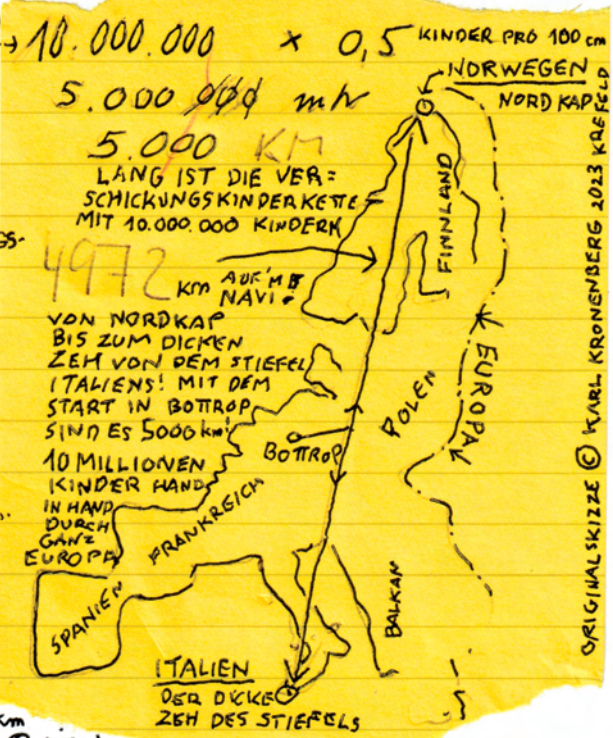 → 10.000.000 × 0,5 KINDER PRO 100 cm
5.000 000 mtr
5.000 KM
LANG IST DIE VER=
SCHICKUNGSKINDERKETTE
MIT 10.000.000 KINDERN
GS-
4972 KM AUF'M
NAVI!
VON NORDKAP
BIS ZUM DICKEN
ZEH VON DEM STIEFEL
ITALIENS! MIT DEM
START IN BOTTROP
SIND ES 5000 km!
10 MILLIONEN
KINDER HAND
IN HAND
DURCH
GANZ
EUROPA
NORWEGEN
NORDKAP
FINNLAND
EUROPA
POLEN
BOTTROP
FRANKREICH
SPANIEN
BALKAN
ITALIEN
DER DICKE
ZEH DES STIEFELS
km
ORIGINALSKIZZE © KARL KRONENBERG 2023 KREFELD